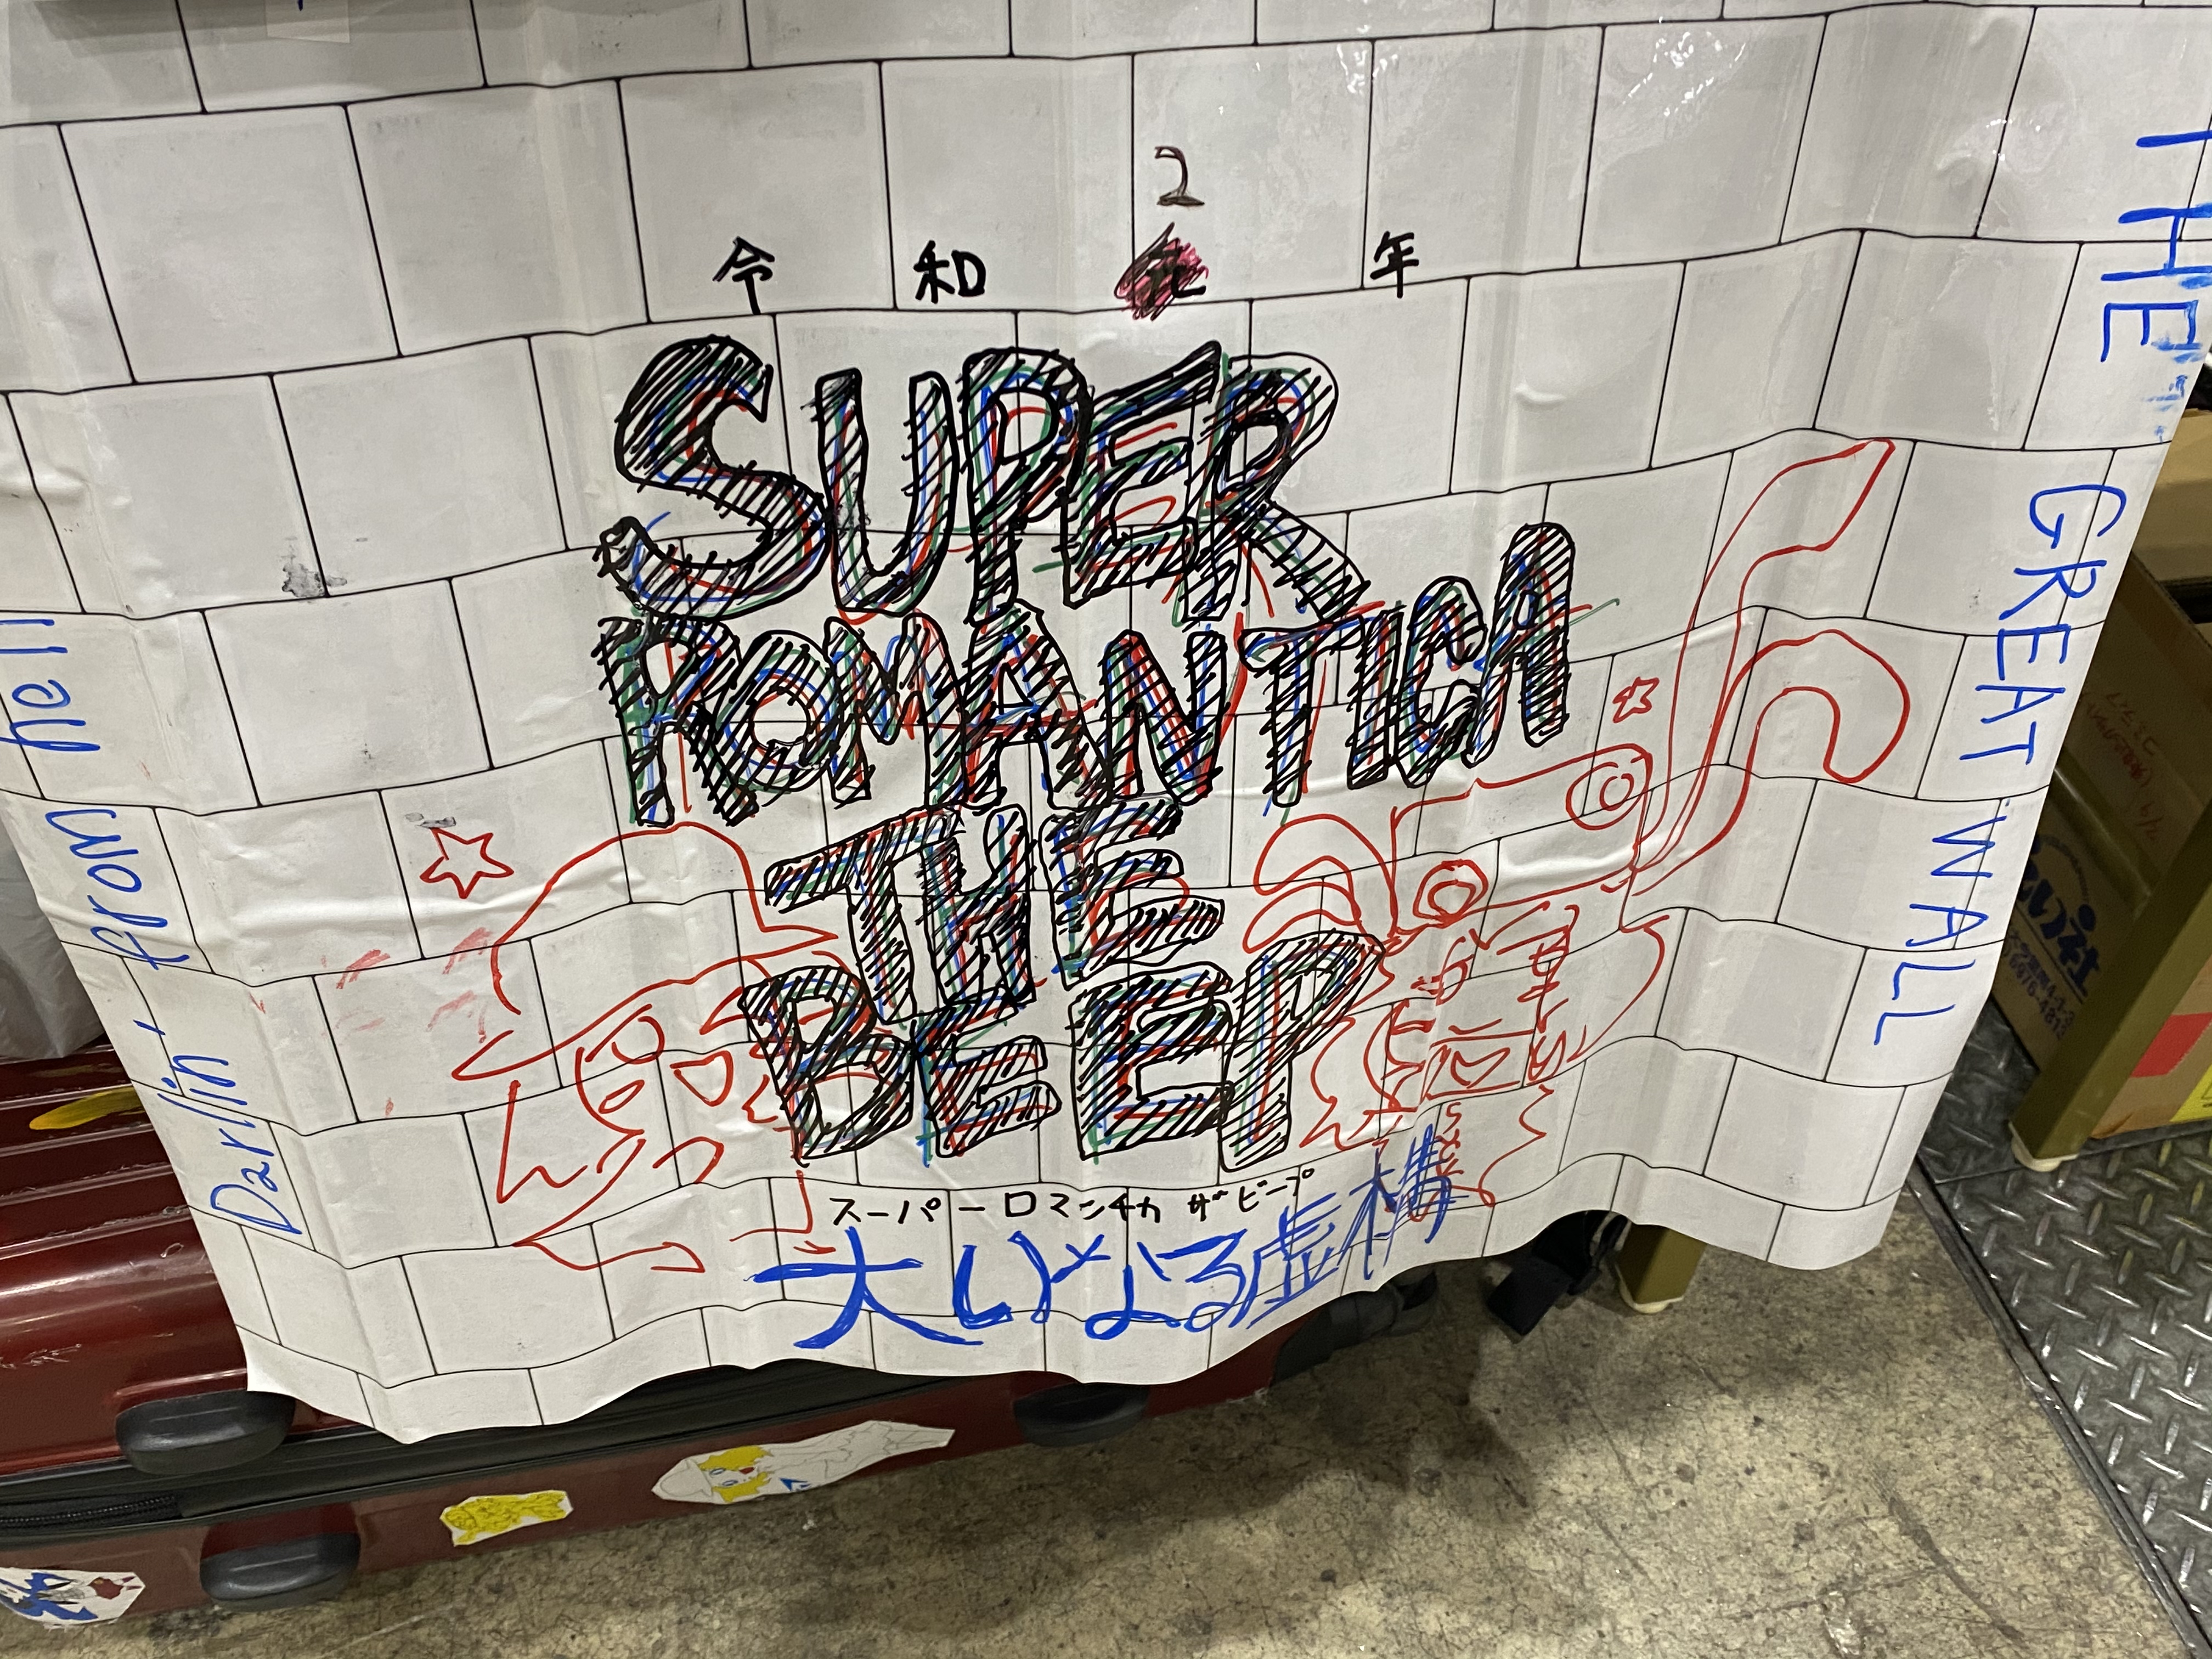 2
令和元年
SUPER
ROMANTICA
THE
BEEP
スーパーロマンチカ ザ ビープ
大いなる虚構
THE GREAT WALL
from Darlin'